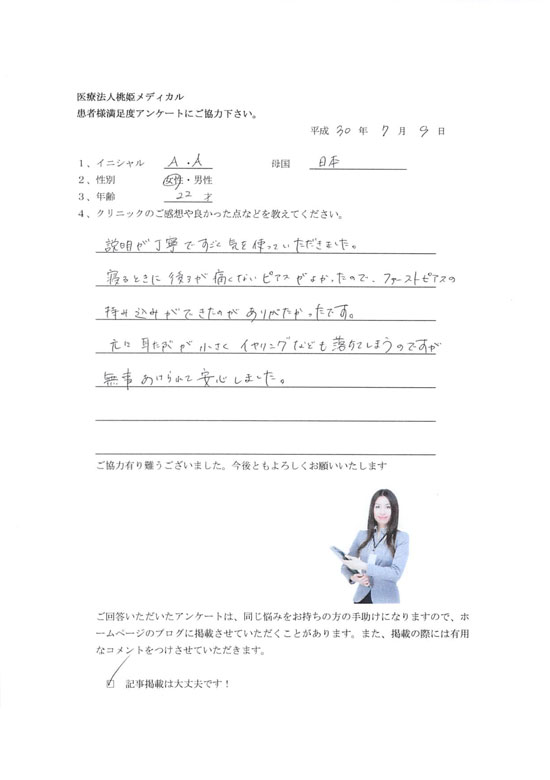 医療法人桃姫メディカル
患者様満足度アンケートにご協力下さい。
平成 30 年 7 月 9 日
1、イニシャル A.A 母国 日本
2、性別 女性・男性
3、年齢 22 才
4、クリニックのご感想や良かった点などを教えてください。
説明が丁寧ですごく気を使っていただきました。
寝るときに後ろが痛くないピアスがよかったので、ファーストピアスの
持ち込みができたのがありがたかったです。
元々耳たぶが小さくイヤリングなども落ちてしまうのですが
無事あけられて安心しました。
ご協力有り難うございました。今後ともよろしくお願いいたします
ご回答いただいたアンケートは、同じ悩みをお持ちの方の手助けになりますので、ホ
ームページのブログに掲載させていただくことがあります。また、掲載の際には有用
なコメントをつけさせていただきます。
☑ 記事掲載は大丈夫です！